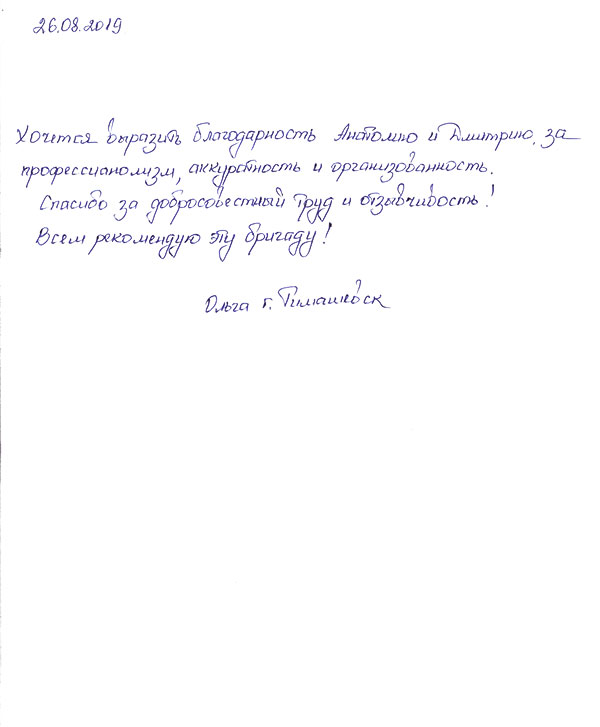 26.08.2019
Хочется выразить благодарность Анатолию и Дмитрию, за
профессианолизм, аккуратность и организованность.
Спасибо за добросовестный труд и отзывчивость!
Всем рекомендую эту бригаду!
Ольга г. Тимашевск